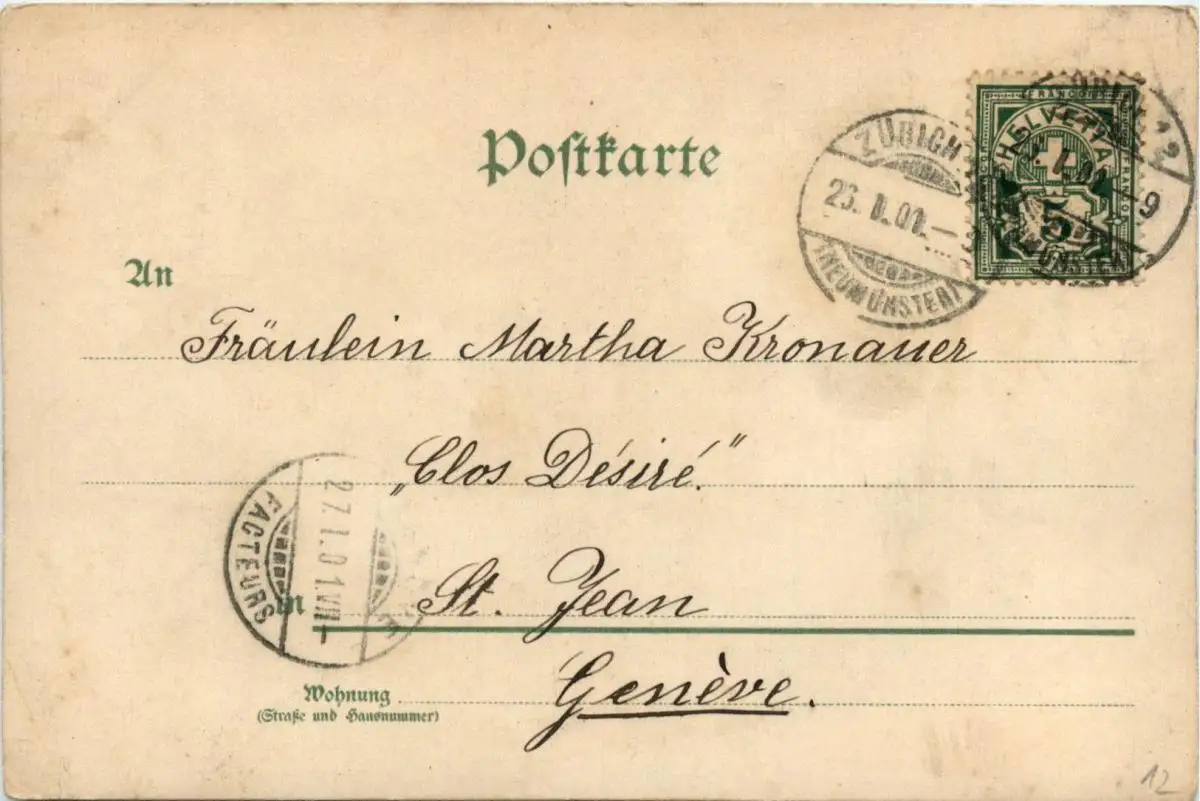 Postkarte
FRANCO
HELVETIA
FRANCO
5
ZÜRICH 12
– 9
(NEUMÜNSTER)
ZÜRICH
(NEUMÜNSTER)
An
Fräulein Martha Kronauer
„Clos Désiré."
FACTEURS
27.I.01.VII–
in
St. Jean
Genève.
Wohnung
(Straße und Hausnummer)
12